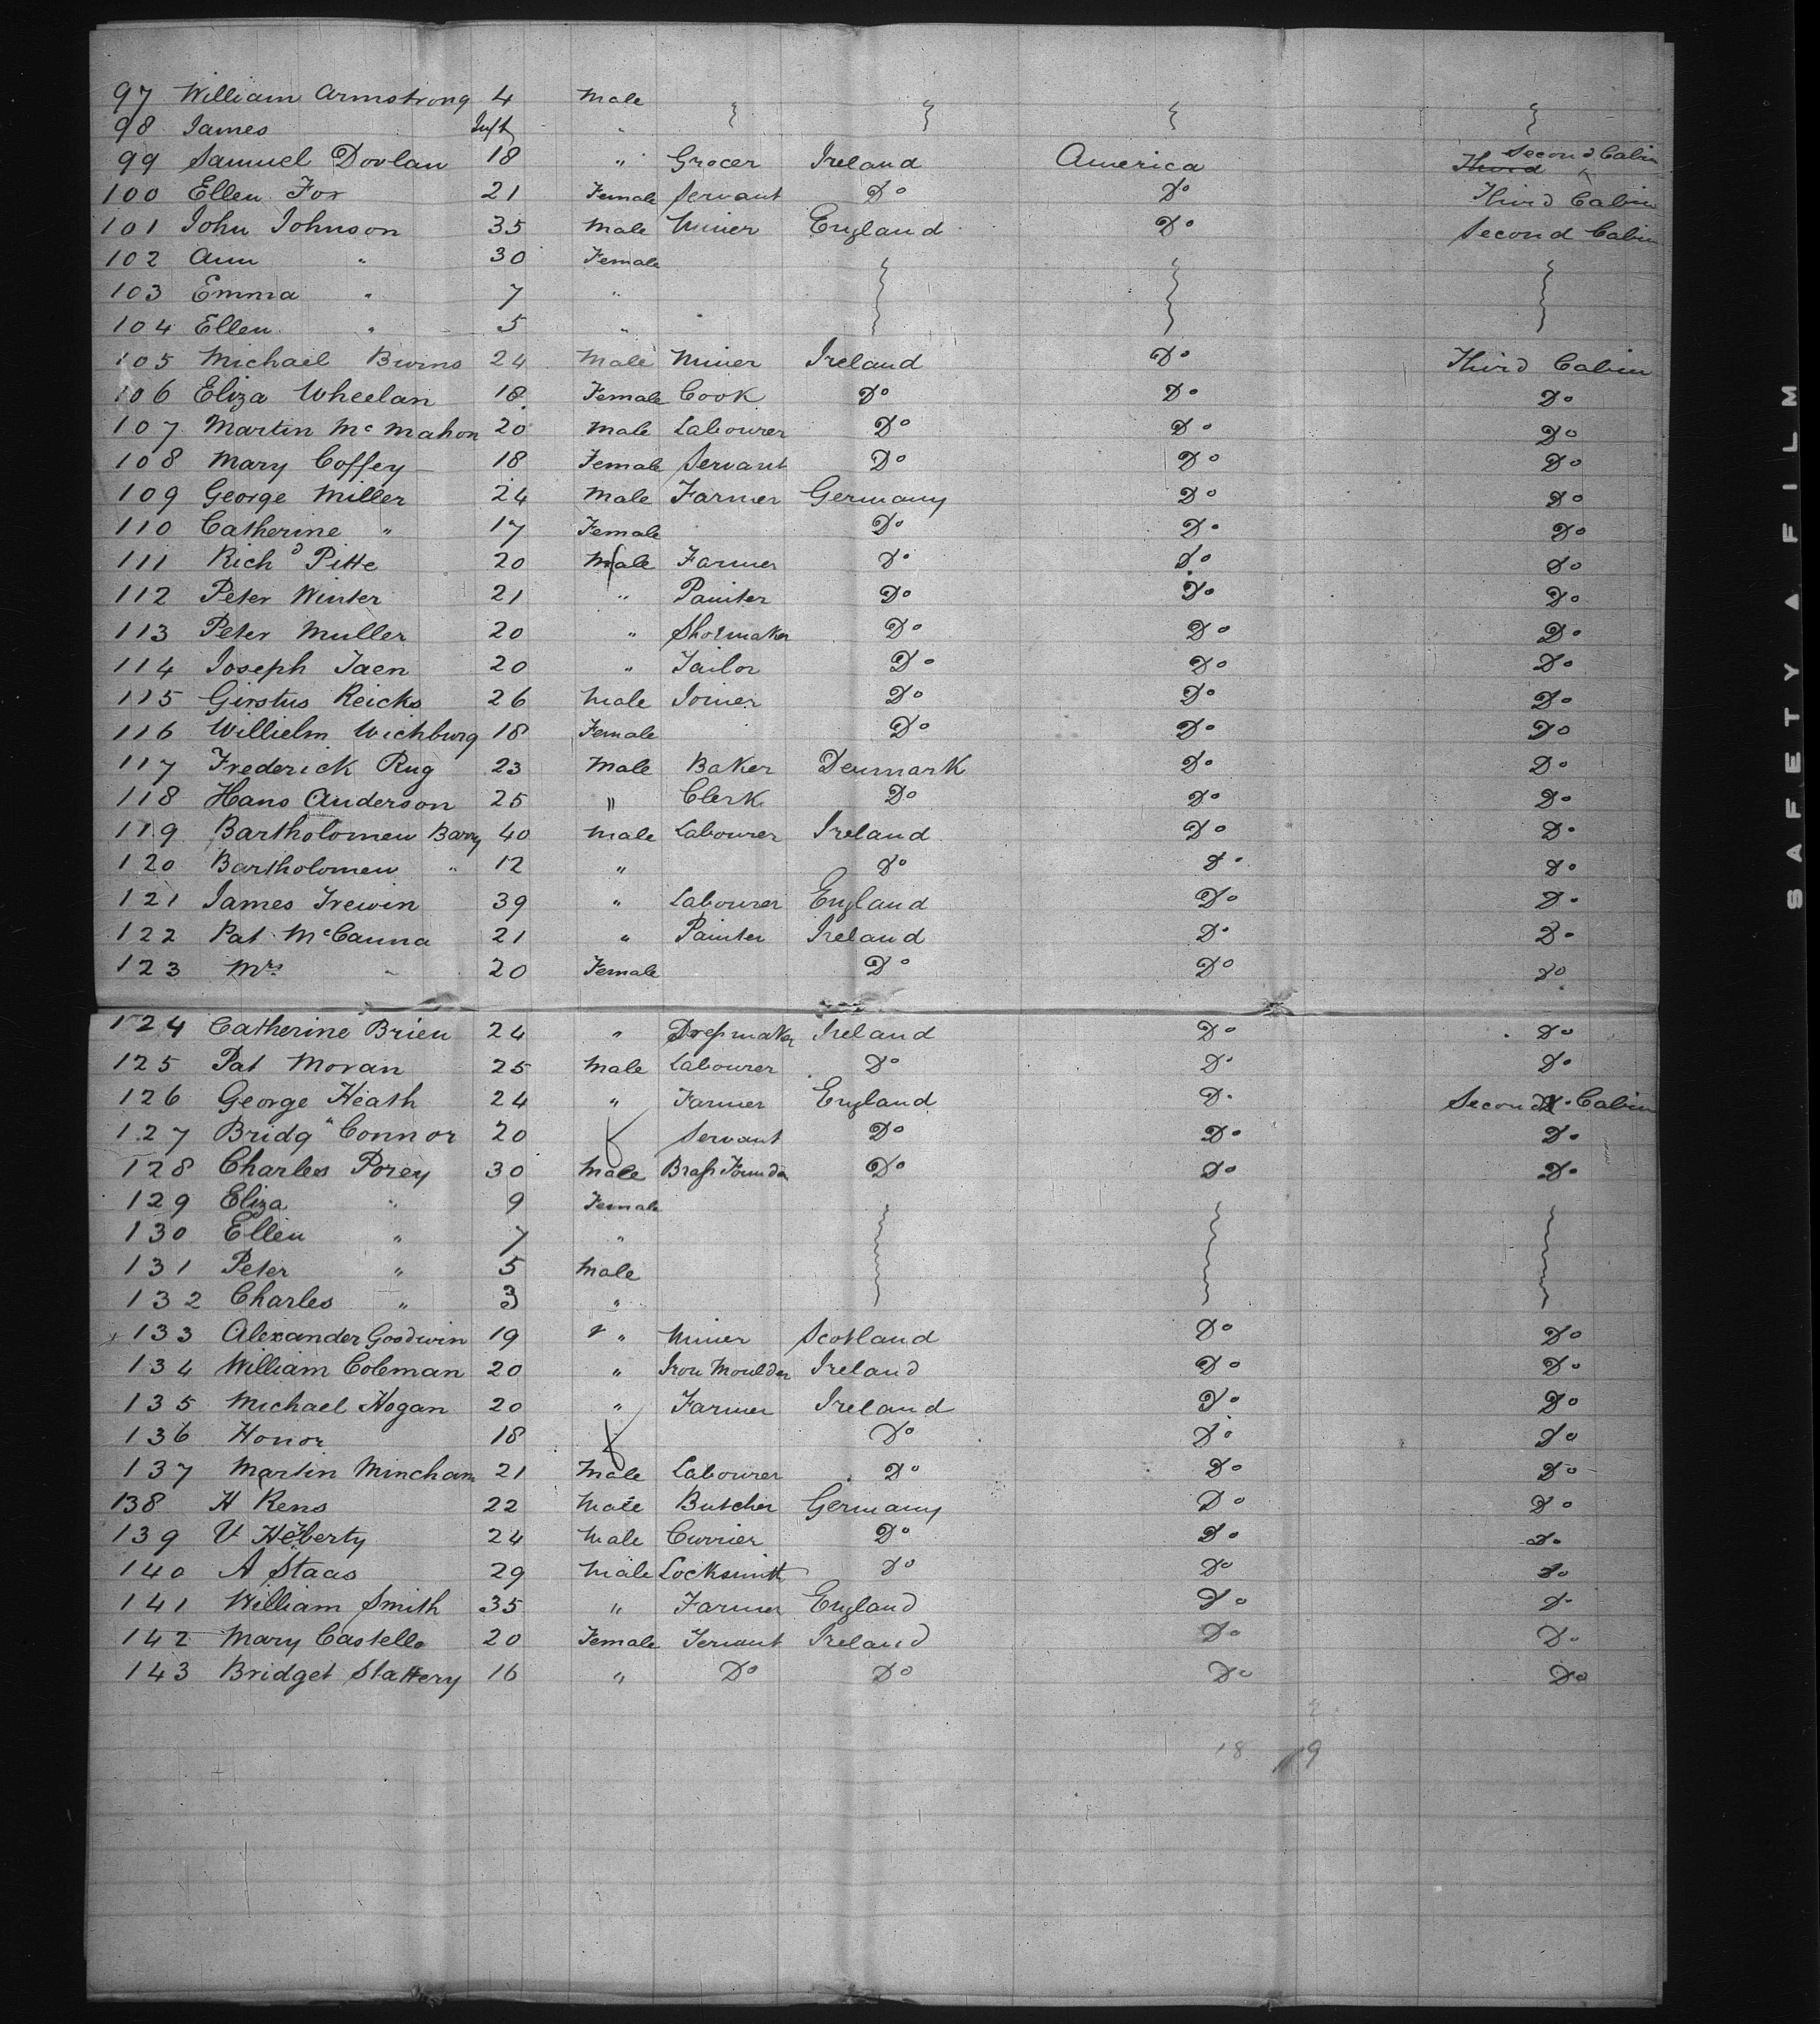 97 William Armstrong 4 Male
98 James Inft "
99 Samuel Doolan 18 " Grocer Ireland America Third Second Cabin
100 Ellen Fox 21 Female Servant Do Do Third Cabin
101 John Johnson 35 Male Miner England Do Second Cabin
102 Ann " 30 Female
103 Emma " 7 "
104 Ellen " 5 "
105 Michael Burns 24 Male Miner Ireland Do Third Cabin
106 Eliza Wheelan 18 Female Cook Do Do Do
107 Martin Mc Mahon 20 Male Labourer Do Do Do
108 Mary Coffey 18 Female Servant Do Do Do
109 George Miller 24 Male Farmer Germany Do Do
110 Catherine " 17 Female Do Do Do
111 Richd Pitte 20 Male Farmer Do Do Do
112 Peter Winter 21 " Painter Do Do Do
113 Peter Muller 20 " Shoemaker Do Do Do
114 Joseph Jaen 20 " Tailor Do Do Do
115 Girstus Reicks 26 Male Joiner Do Do Do
116 Willielm Wichburg 18 Female Do Do Do
117 Frederick Rug 23 Male Baker Denmark Do Do
118 Hans Anderson 25 " Clerk Do Do Do
119 Bartholomew Barry 40 Male Labourer Ireland Do Do
120 Bartholomew " 12 " Do Do Do
121 James Trewin 39 " Labourer England Do Do
122 Pat McCanna 21 " Painter Ireland Do Do
123 Mrs " 20 Female Do Do Do
124 Catherine Brien 24 " Dressmaker Ireland Do Do
125 Pat Moran 25 Male Labourer Do Do Do
126 George Heath 24 " Farmer England Do Second Cabin
127 Bridg " Connor 20 f Servant Do Do Do
128 Charles Porey 30 Male Brass Founder Do Do Do
129 Eliza " 9 Female
130 Ellen " 7 "
131 Peter " 5 Male
132 Charles " 3 "
133 Alexander Goodwin 19 " Miner Scotland Do Do
134 William Coleman 20 " Iron Moulder Ireland Do Do
135 Michael Hogan 20 " Farmer Ireland Do Do
136 Honor 18 f Do Do Do
137 Martin Mincham 21 Male Labourer Do Do Do
138 H Rens 22 Male Butcher Germany Do Do
139 V Heberty 24 Male Currier Do Do Do
140 A Staas 29 Male Locksmith Do Do Do
141 William Smith 35 " Farmer England Do Do
142 Mary Castello 20 Female Servant Ireland Do Do
143 Bridget Slattery 16 " Do Do Do Do
18 19
SAFETY A FILM